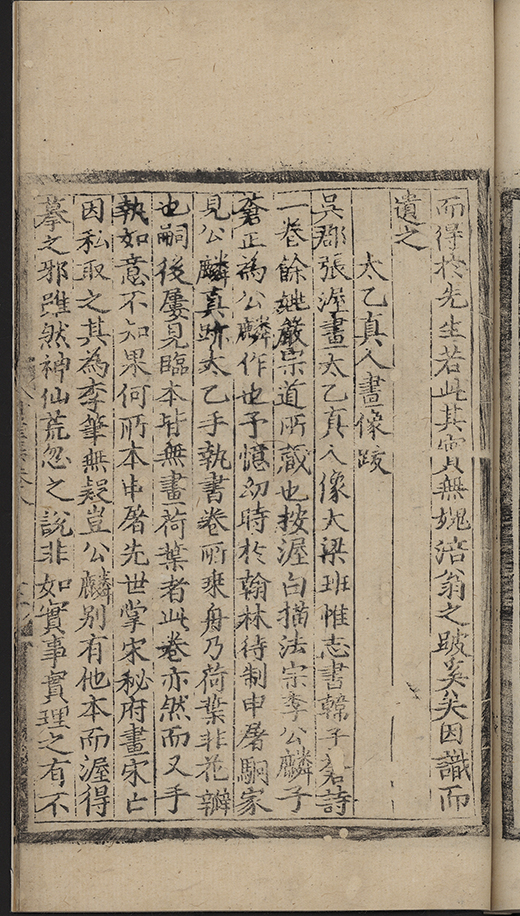 而得於先生若此其實無媿涪翁之跋矣因識而
遺之
太乙真人畫像跋
吳郡張渥畫太乙真人像大梁班惟志書韓子蒼詩
一卷餘姚嚴宗道所蔵也按渥白描法宗李公麟子
蒼正為公麟作也予憶㓜時於翰林待制申屠駉家
見公麟真跡太乙手執書卷所乗舟乃荷葉非花瓣
也嗣後屢見臨本皆無畫荷葉者此卷亦然而又手
執如意不知果何所本申屠先世掌宋秘府畫宋亡
因私取之其為李筆無疑豈公麟別有他本而渥得
摹之邪雖然神仙荒忽之說非如實事實理之有不